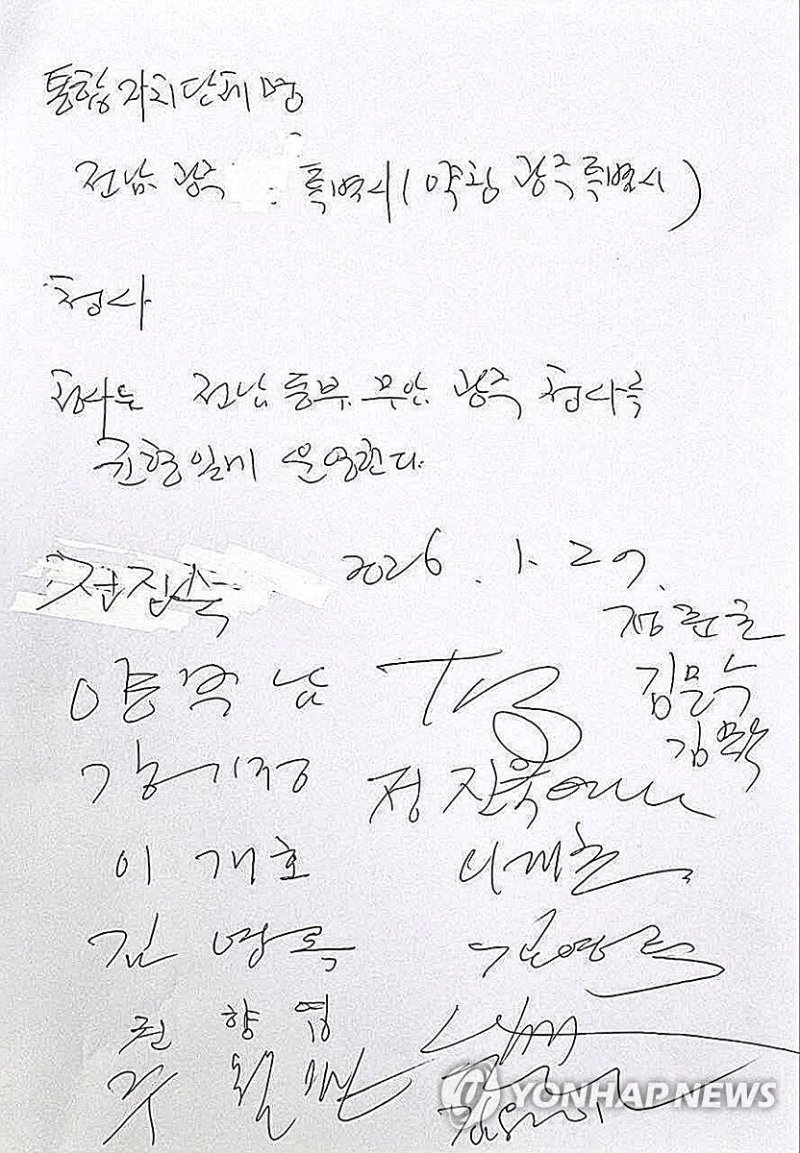 통합자치단체명
전남광주 특별시(약칭 광주특별시)
청사
청사는 전남동부 무안 광주 청사를
균형있게 운영한다.
2026. 1. 27.
전진숙
정준호
양부남
김문수
김문수
강기정
정진욱
이개호
이개호
김영록
김영록
권향엽
주철현
김원이
YONHAP NEWS